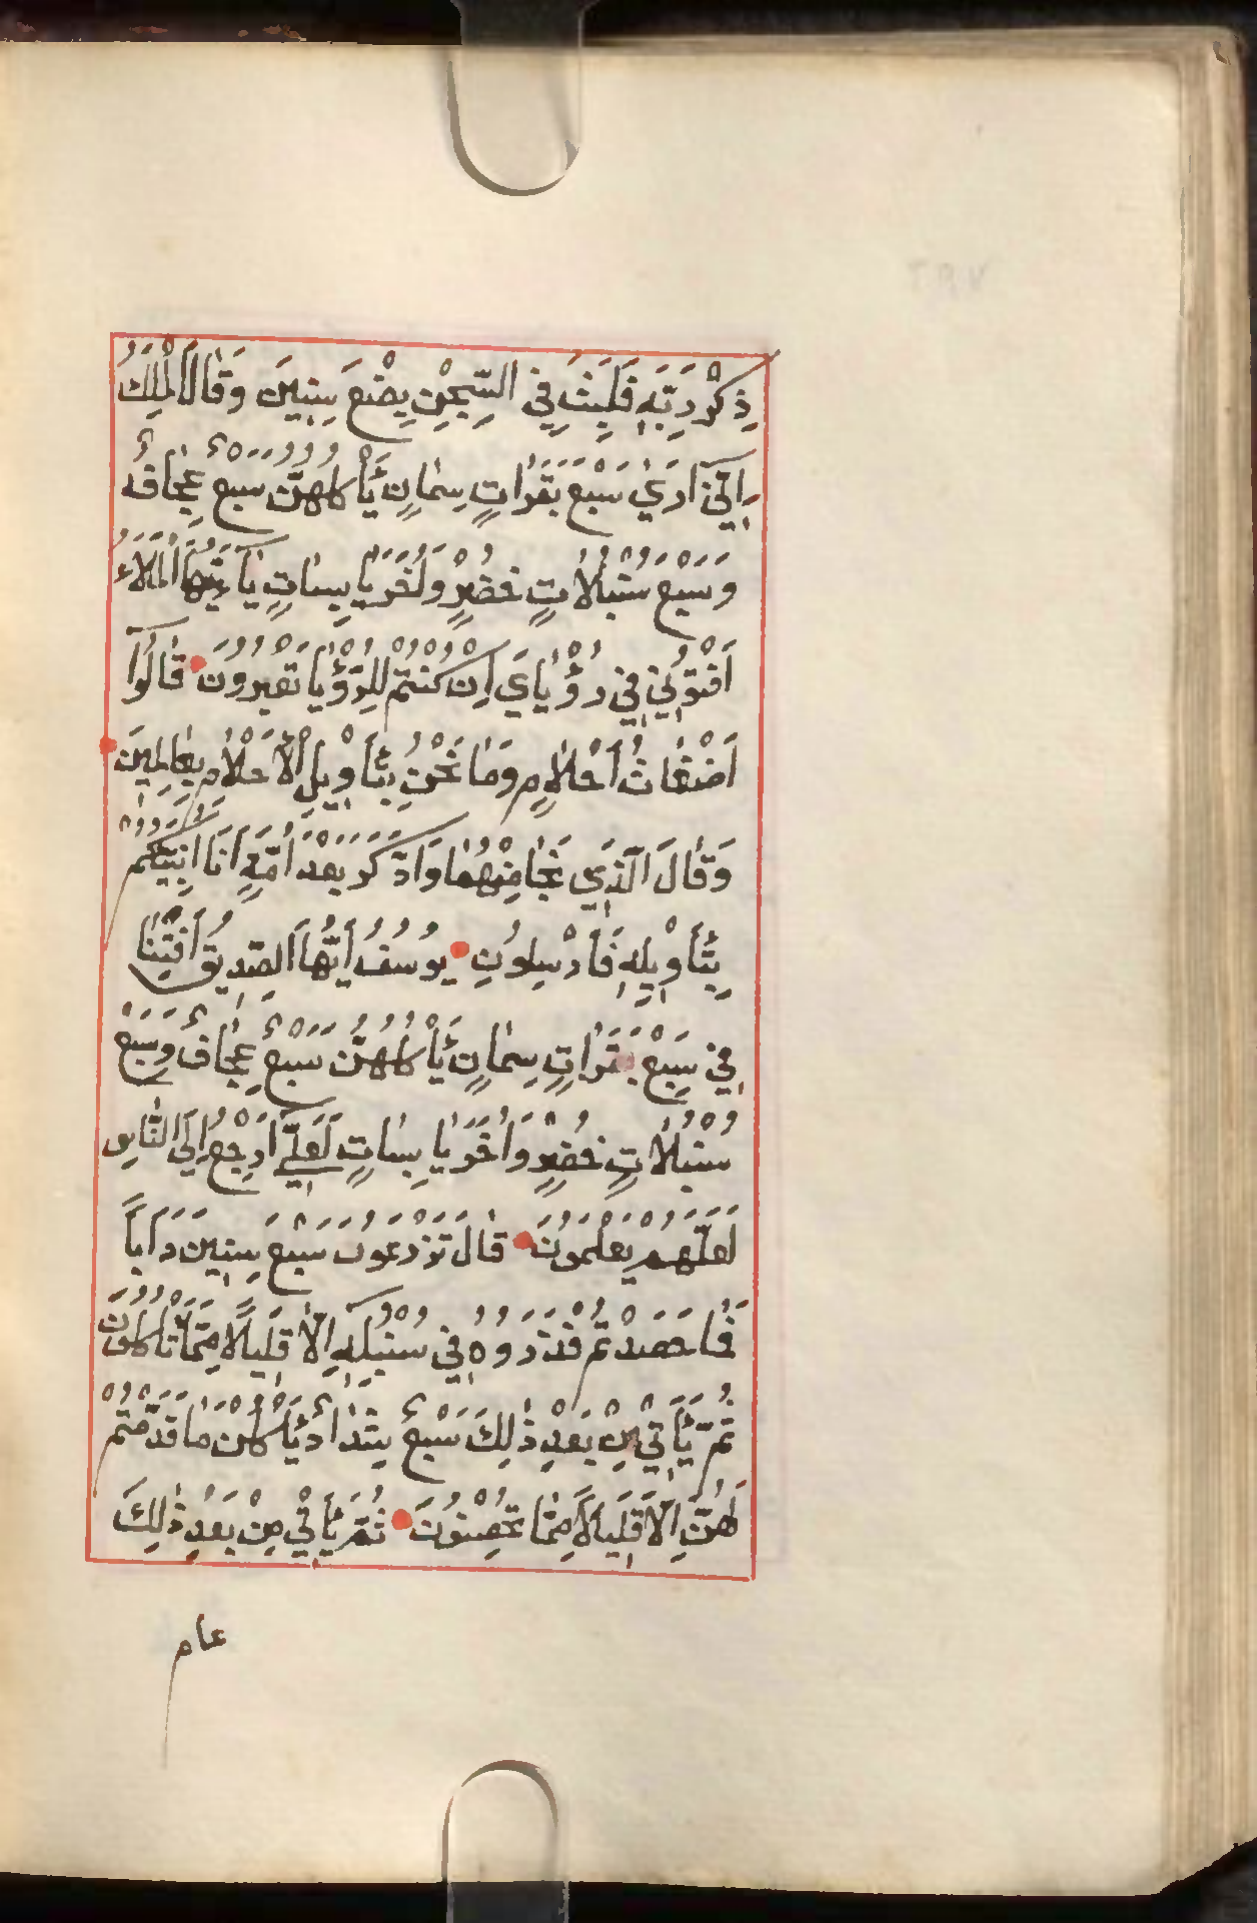 ذِكْرَ رَبِّهِ فَلَبِثَ فِي السِّجْنِ بِضْعَ سِنِينَ وَقَالَ الْمَلِكُ
اِنِّي اَرَي سَبْعَ بَقَرَاتٍ سِمَانٍ يَأْكُلُهُنَّ سَبْعٌ عِجَافٌ
وَسَبْعَ سُنْبُلَاتٍ خُضْرٍ وَاُخَرَ يَابِسَاتٍ يَآ اَيُّهَا الْمَلَاءُ
اَفْتُوْنِي فِي رُؤْيَايَ اِنْ كُنْتُمْ لِلرُّؤْيَا تَعْبُرُونَ قَالُوآ
اَضْغَاثُ اَحْلَامٍ وَمَا نَحْنُ بِتَأْوِيلِ الْاَحْلَامِ بِعَالِمِينَ
وَقَالَ الَّذِي نَجَا مِنْهُمَا وَادَّكَرَ بَعْدَ اُمَّةٍ اَنَا اُنَبِّئُكُمْ
بِتَأْوِيلِهِ فَاَرْسِلُونِ يُوسُفُ اَيُّهَا الصِّدِيقُ اَفْتِنَا
فِي سَبْعِ بَقَرَاتٍ سِمَانٍ يَأْكُلُهُنَّ سَبْعٌ عِجَافٌ وَسَبْعِ
سُنْبُلَاتٍ خُضْرٍ وَاُخَرَ يَابِسَاتٍ لَعَلِّي اَرْجِعُ اِلَي النَّاسِ
لَعَلَّهُمْ يَعْلَمُونَ قَالَ تَزْرَعُونَ سَبْعَ سِنِينَ دَاَبًا
فَمَا حَصَدْتُمْ فَذَرُوهُ فِي سُنْبُلِهِ اِلَّا قَلِيلًا مِمَّا تَأْكُلُونَ
ثُمَّ يَأْتِي مِنْ بَعْدِ ذَلِكَ سَبْعٌ شِدَادٌ يَأْكُلْنَ مَا قَدَّمْتُمْ
لَهُنَّ اِلَّا قَلِيلًا مِمَّا تُحْصِنُونَ ثُمَّ يَأْتِي مِنْ بَعْدِ ذَلِكَ
عام